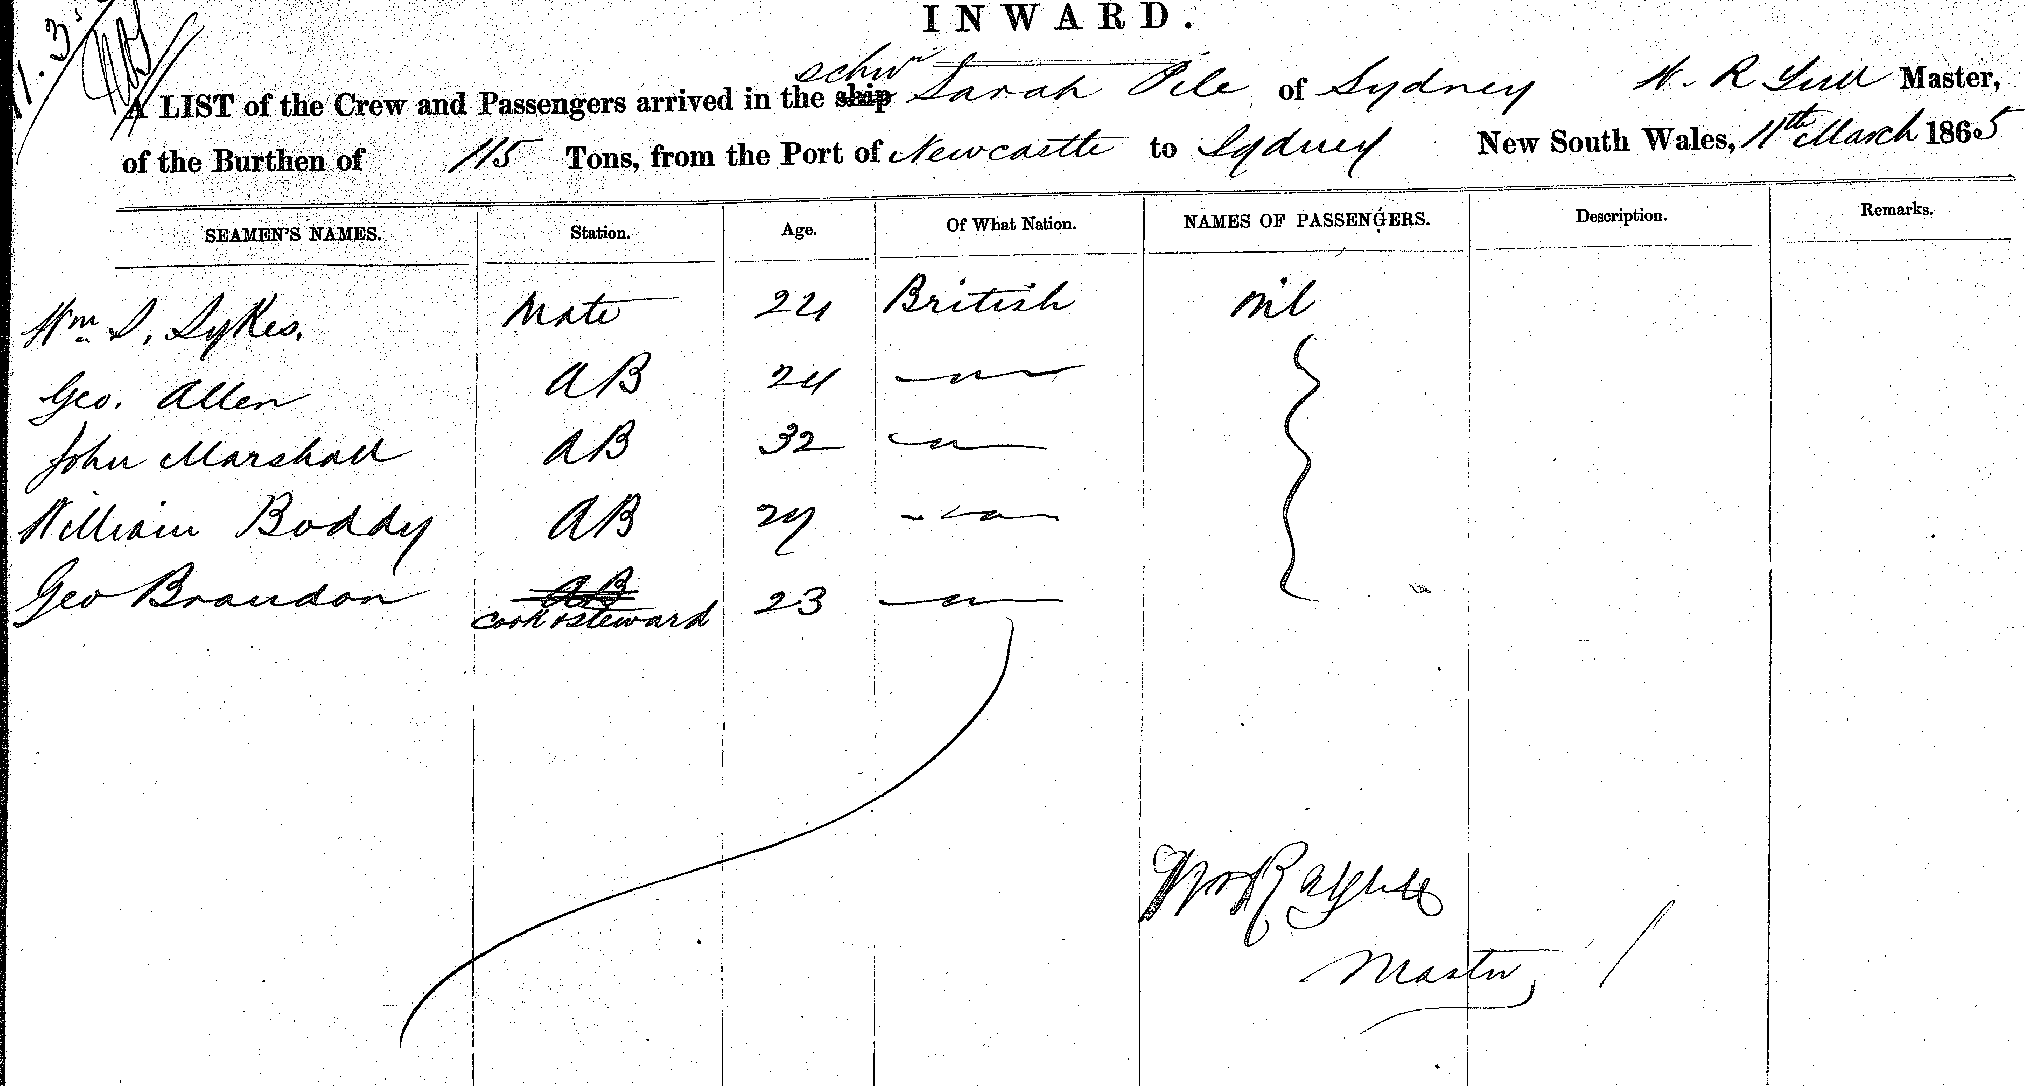 11.3.
INWARD.
A LIST of the Crew and Passengers arrived in the ship schr Sarah Pile of Sydney W. R Master,
of the Burthen of 115 Tons, from the Port of Newcastle to Sydney New South Wales, 11th March 1865
SEAMEN'S NAMES. Station. Age. Of What Nation. NAMES OF PASSENGERS. Description. Remarks.
Wm S. Sykes. Mate 24 British nil
Geo. Allen AB 24
John Marshall AB 32
William Boddy AB 27
Geo Brandon AB Cook & Steward 23
Master